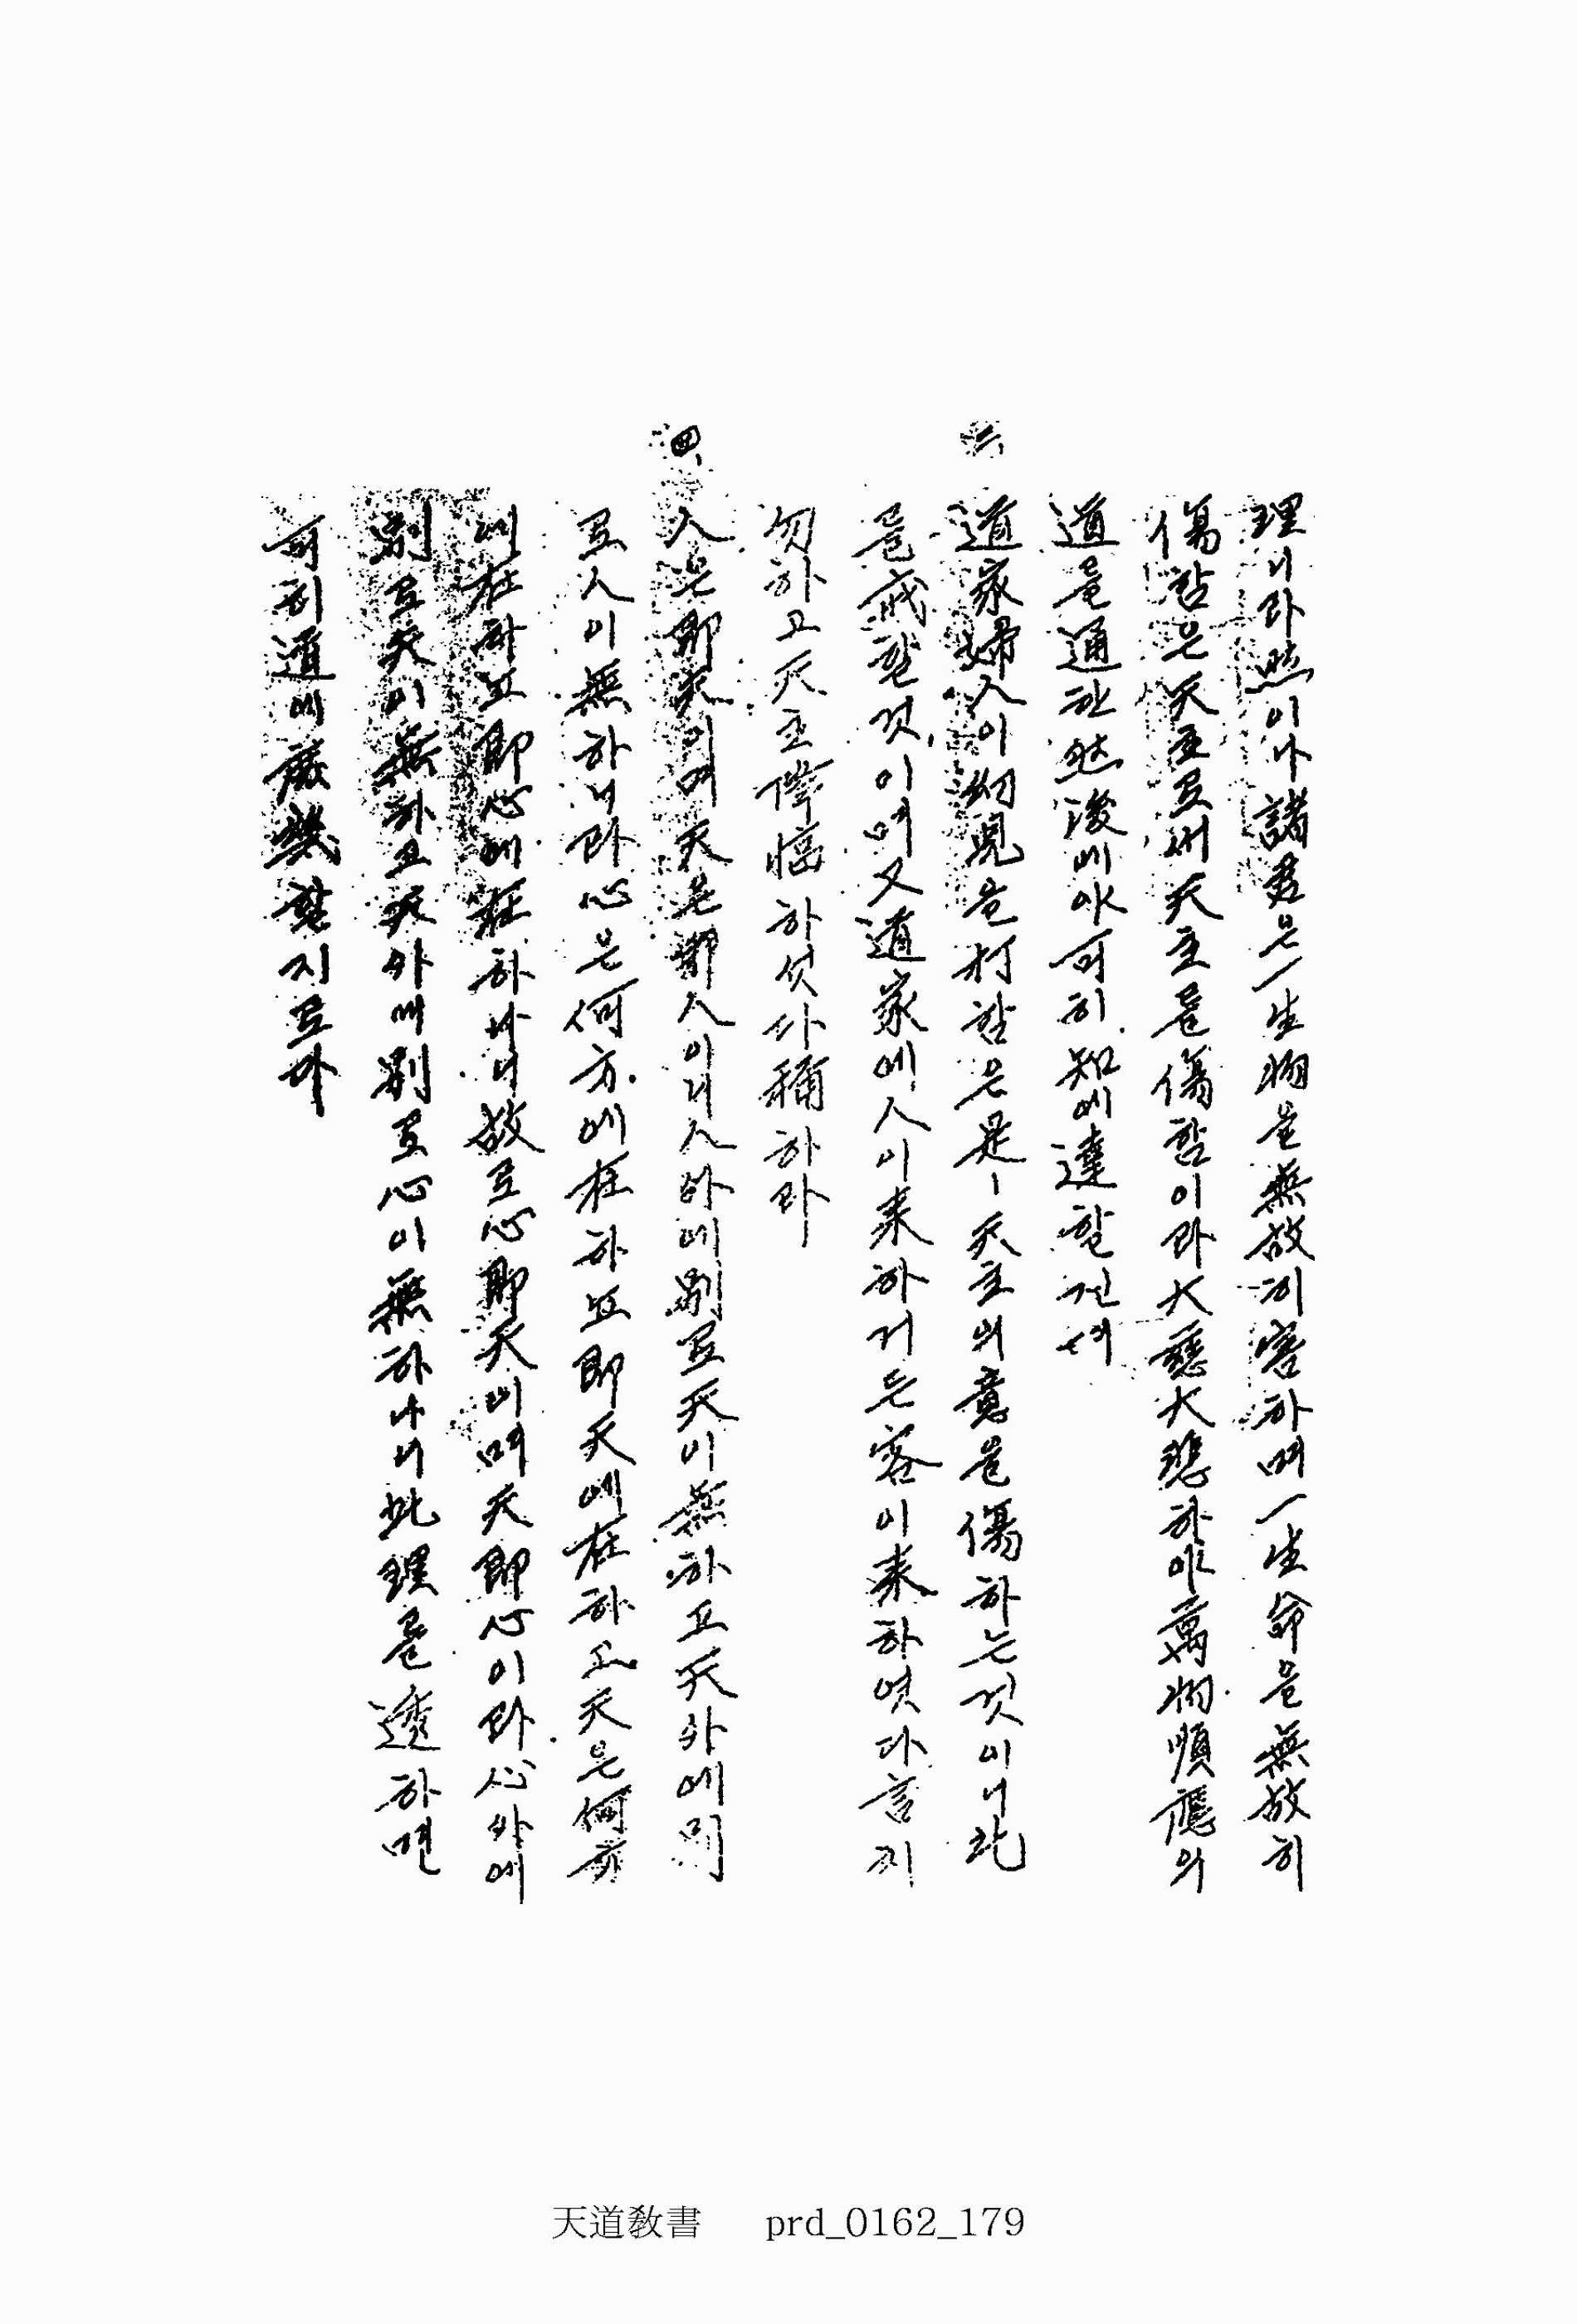 理니라 然이나 諸君은 一生物을 無故히 害하며 一生命을 無故히
傷함은 天主로써 天主를 傷함이라 大慈大悲하야 萬物順應의
道를 通한 然後에야 可히 知에 達할진져
三, 道家婦人이 幼兒을 打함은 是ㅣ 天主의 意을 傷하는 것이니 此
를 戒할 것이며 又 道家에 人이 來하거든 客이 來하엿다 言지
勿하고 天主降臨하섯다 稱하라
四, 人은 卽天이며 天은 卽人이니 人外에 別로 天이 無하고 天外에 別
로 人이 無하니라 心은 何方에 在하뇨 卽天에 在하고 天은 何方
에 在하뇨 卽心에 在하나니 故로 心卽天이며 天卽心이라 心外에
別로 天이 無하고 天外에 別로 心이 無하나니 此理를 透하면
可히 道에 庶幾할지로다
天道敎書 prd_0162_179